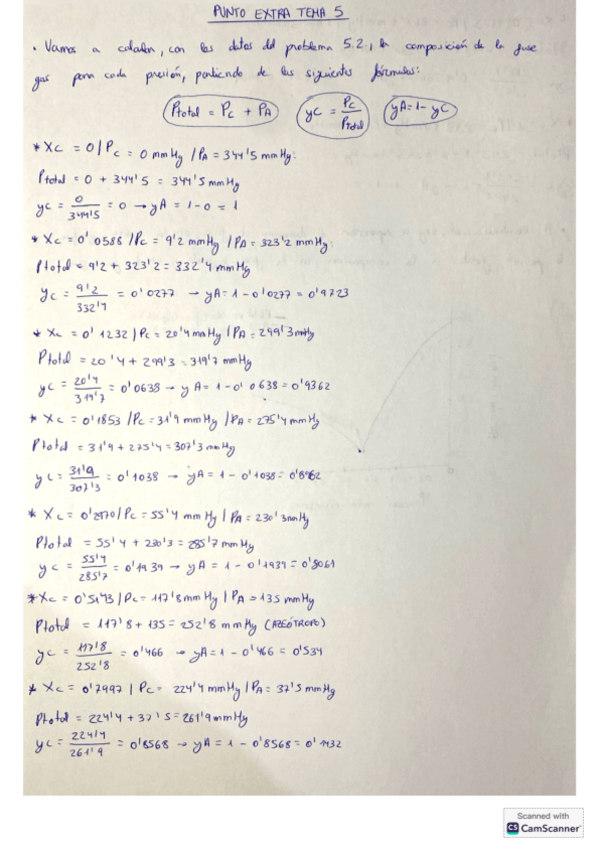 PUNTO EXTRA TEMA 5
• Vamos a calcular, con los datos del problema 5.2., la composición de la fase
gas para cada presión, partiendo de las siguientes fórmulas:
Ptotal = Pc + PA yc = Pc/Ptotal yA = 1 - yc
* Xc = 0 / Pc = 0 mmHg / PA = 344'5 mmHg:
Ptotal = 0 + 344'5 = 344'5 mmHg
yc = 0/344'5 = 0 → yA = 1 - 0 = 1
* Xc = 0'0588 / Pc = 9'2 mmHg / PA = 323'2 mmHg:
Ptotal = 9'2 + 323'2 = 332'4 mmHg
yc = 9'2/332'4 = 0'0277 → yA = 1 - 0'0277 = 0'9723
* Xc = 0'1232 / Pc = 20'4 mmHg / PA = 299'3 mmHg
Ptotal = 20'4 + 299'3 = 319'7 mmHg
yc = 20'4/319'7 = 0'0638 → yA = 1 - 0'0638 = 0'9362
* Xc = 0'1853 / Pc = 31'9 mmHg / PA = 275'4 mmHg
Ptotal = 31'9 + 275'4 = 307'3 mmHg
yc = 31'9/307'3 = 0'1038 → yA = 1 - 0'1038 = 0'8962
* Xc = 0'2970 / Pc = 55'4 mmHg / PA = 230'3 mmHg
Ptotal = 55'4 + 230'3 = 285'7 mmHg
yc = 55'4/285'7 = 0'1939 → yA = 1 - 0'1939 = 0'8061
* Xc = 0'5143 / Pc = 117'8 mmHg / PA = 135 mmHg
Ptotal = 117'8 + 135 = 252'8 mmHg (AZEÓTROPO)
yc = 117'8/252'8 = 0'466 → yA = 1 - 0'466 = 0'534
* Xc = 0'7997 / Pc = 224'4 mmHg / PA = 37'5 mmHg
Ptotal = 224'4 + 37'5 = 261'9 mmHg
yc = 224'4/261'9 = 0'8568 → yA = 1 - 0'8568 = 0'1432
Scanned with
CS CamScanner